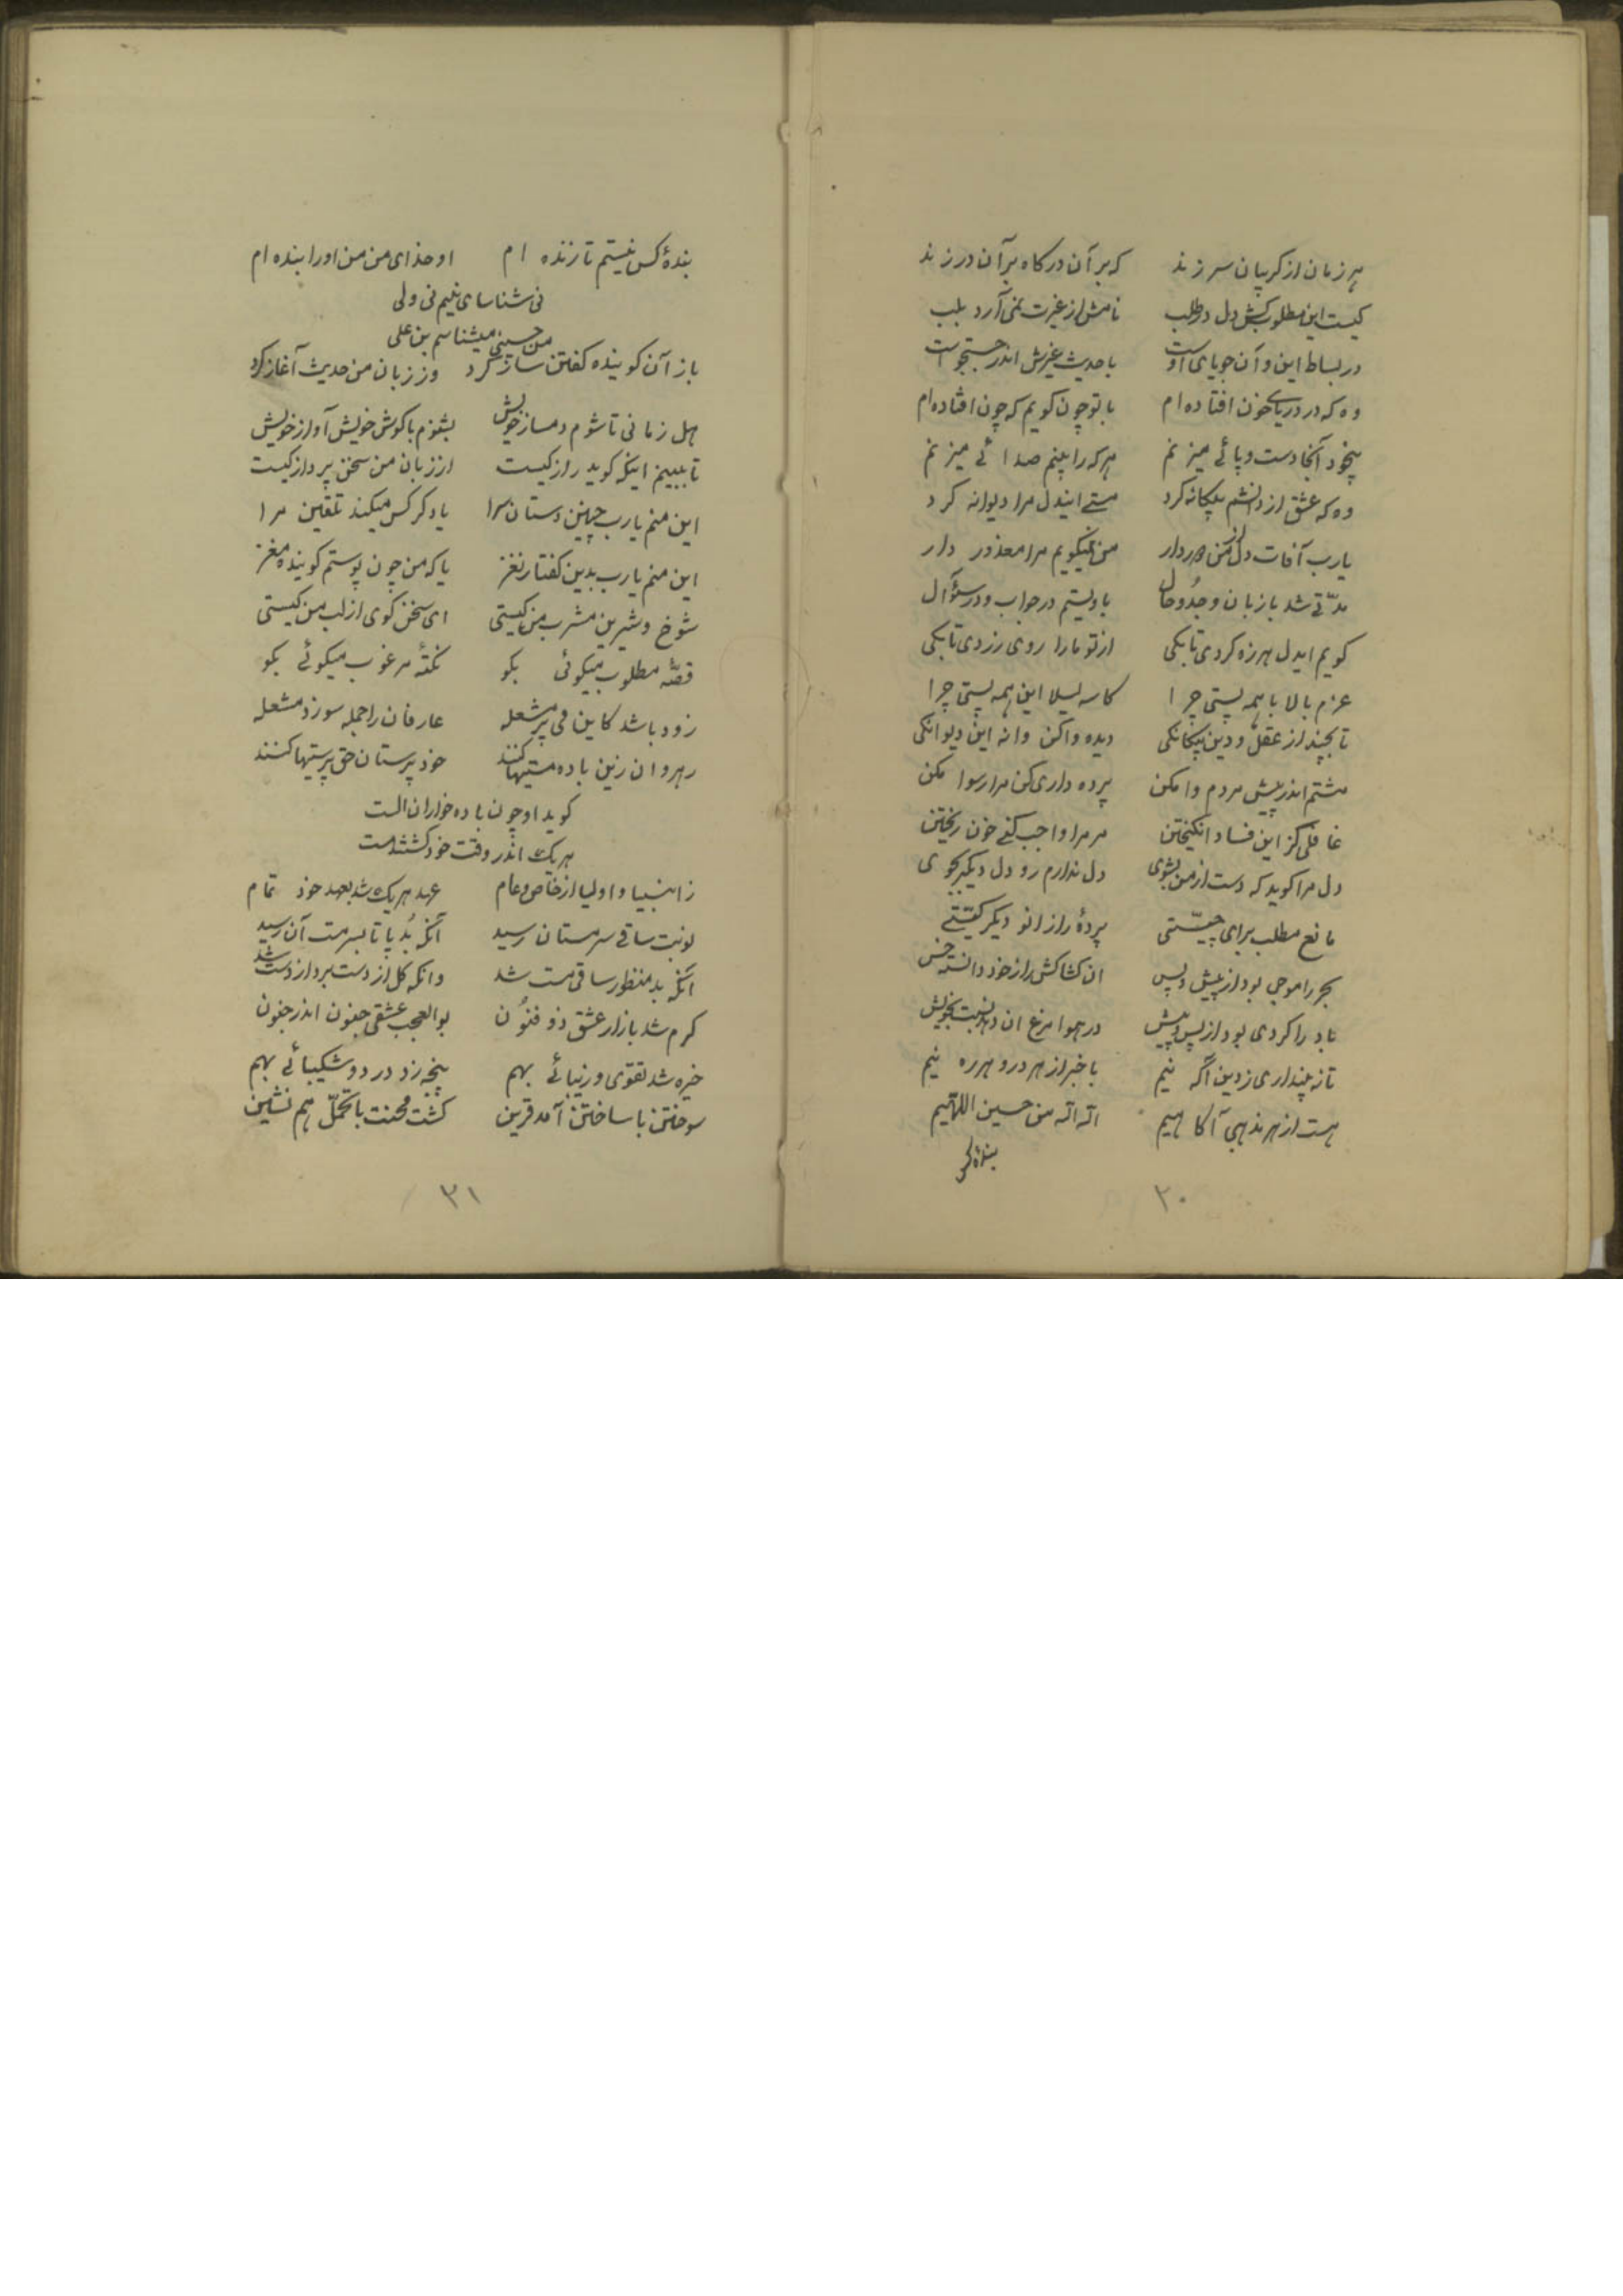 هر زمان از کریبان سر زند که بر آن درکاه بر آن در زند
کیست این مطلوب کش دل در طلب نامش از غیرت نمی‌آرد بلب
در بساط این و آن جویای اوست با حدیث غیرش اندر جستجوست
وه که در دریای خون افتاده ام با تو چون کویم که چون افتاده ام
بیخود آنجا دست و پائے میزنم هر که را بینم صدائے میزنم
وه که عشق از دانشم بیکانه کرد مستے ایندل مرا دیوانه کرد
یارب آفات دل از من دور دار من نمیکویم مرا معذور دار
مدّتی شد با زبان وجد و حال با دلستم در جواب و در سؤال
کویم ایدل هرزه کردی تا بکی از تو ما را روی زردی تا بکی
عزم بالا با همه پستی چرا کاسه لیسلا این همه پستی چرا
تا بچند از عقل و دین بیکانکی دیده واکن وا نه این دیوانکی
مشتم اندر پیش مردم وا مکن پرده داری کن مرا رسوا مکن
غافلی کز این فساد انکیختن مر مرا واجب کنے خون ریختن
دل مرا کوید که دست از من بشوی دل ندارم رو دل دیکر بجوی
مانع مطلب برای چیستی پردهٔ راز انو دیکر کیستے
بحر را موجی بود از پیش و پس ان کشاکش را ز خود دانسته خس
باد را کردی بود از پس و پیش در هوا مرغ ان دهد نسبت بخویش
تا نه پنداری ز دین آگه نیم با خبر از هر در و هر ره نیم
هست از هر مذهبی آکاهیم الله الله من حسین اللهیم
بندهٔ کس
۳۰
بندهٔ کس نیستم تا زنده ام او خدای من من او را بنده ام
نی شناسای نبیم نی ولی
من حسینی میشناسم بن علی
باز آن کوینده کفتن ساز کرد وز زبان من حدیث آغاز کرد
هل زمانی تا شوم دمساز خویش بشنوم با کوش خویش آواز خویش
تا ببینم اینکه کوید راز کیست از زبان من سخن پرداز کیست
این منم یارب چنین دستان سرا یا دکر کس میکند تلقین مرا
این منم یارب بدین کفتار نغز یا که من چون پوستم کوینده مغز
شوخ و شیرین مشرب من کیستی ای سخن کوی از لب من کیستی
قصّه مطلوب میکوئی بکو نکتهٔ مرغوب میکوئے بکو
زود باشد کاین می پر مشعله عارفان را جمله سوزد مشعله
رهروان زین باده مستیها کنند خود پرستان حق پرستیها کنند
کوید او چون باده خواران الست
هر یک اندر وقت خود کشتند مست
ز انبیا و اولیا از خاص و عام عهد هر یک شد بعهد خود تمام
نوبت ساقے سرمستان رسید آنکه بُد پا تا بسر مست آن رسید
آنکه بد منظور ساقی مست شد وانکه کل از دست برد از دست شد
کرم شد بازار عشق ذو فنُون بوالعجب عشقی جنون اندر جنون
خیره شد تقوی و زیبائے بهم پنجه زد درد و شکیبائے بهم
سوختن با ساختن آمد قرین کشت محنت با تحمّل هم نشین
۳۱